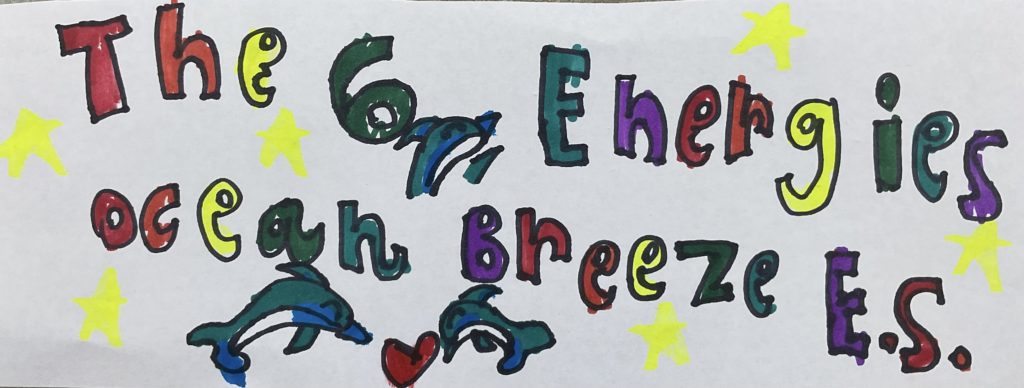 The 6 Energies
Ocean Breeze E.S.